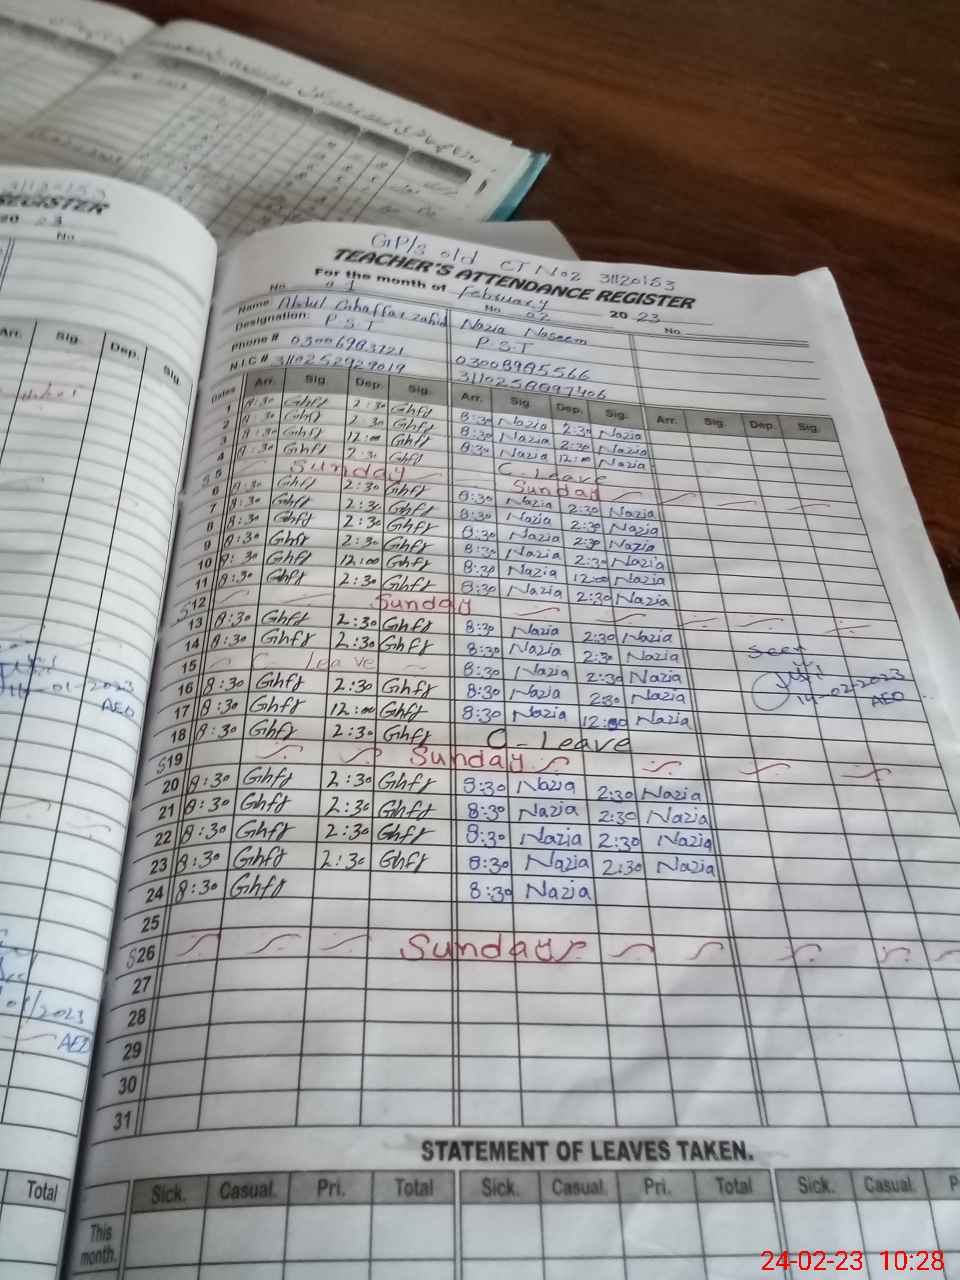 31120153
REGISTER
20 23
No.
Arr. Sig. Dep. Sig.
14-01-2023
AEO
2023
AEO
Total
GP/S old CT No 2 31120153
TEACHER'S ATTENDANCE REGISTER
For the month of February 20 23
No. 01 No 02 No.
Name Abdul Ghaffar zahid Nazia Naseem
Designation: P.S.T P.S.T
Phone # 03006983721 03008985566
N.I.C # 3110252929019
Dates Arr. Sig. Dep. Sig. Arr. Sig. Dep. Sig. Arr. Sig. Dep. Sig.
1 8:30 Ghfr 2:30 Ghfr 8:30 Nazia 2:30 Nazia
2 8:30 Ghfr 2:30 Ghfr 8:30 Nazia 2:30 Nazia
3 8:30 Ghfr 12:00 Ghfr 8:30 Nazia 12:00 Nazia
4 8:30 Ghfr 2:30 Ghfr C-Leave
S 5 Sunday Sunday
6 8:30 Ghfr 2:30 Ghfr 8:30 Nazia 2:30 Nazia
7 8:30 Ghfr 2:30 Ghfr 8:30 Nazia 2:30 Nazia
8 8:30 Ghfr 2:30 Ghfr 8:30 Nazia 2:30 Nazia
9 8:30 Ghfr 2:30 Ghfr 8:30 Nazia 2:30 Nazia
10 8:30 Ghfr 12:00 Ghfr 8:30 Nazia 12:00 Nazia
11 8:30 Ghfr 2:30 Ghfr 8:30 Nazia 2:30 Nazia
S12 Sunday
13 8:30 Ghfr 2:30 Ghfr 8:30 Nazia 2:30 Nazia
14 8:30 Ghfr 2:30 Ghfr 8:30 Nazia 2:30 Nazia Seen
15 C- leave 8:30 Nazia 2:30 Nazia
16 8:30 Ghfr 2:30 Ghfr 8:30 Nazia 2:30 Nazia 14-02-2023
17 8:30 Ghfr 12:00 Ghfr 8:30 Nazia 12:00 Nazia AEO
18 8:30 Ghfr 2:30 Ghfr C-Leave
S19 Sunday
20 8:30 Ghfr 2:30 Ghfr 8:30 Nazia 2:30 Nazia
21 8:30 Ghfr 2:30 Ghfr 8:30 Nazia 2:30 Nazia
22 8:30 Ghfr 2:30 Ghfr 8:30 Nazia 2:30 Nazia
23 8:30 Ghfr 2:30 Ghfr 8:30 Nazia 2:30 Nazia
24 8:30 Ghfr 8:30 Nazia
25
S26 Sunday
27
28
29
30
31
STATEMENT OF LEAVES TAKEN.
Sick. Casual. Pri. Total Sick. Casual. Pri. Total Sick. Casual. P
This
month.
24-02-23 10:28